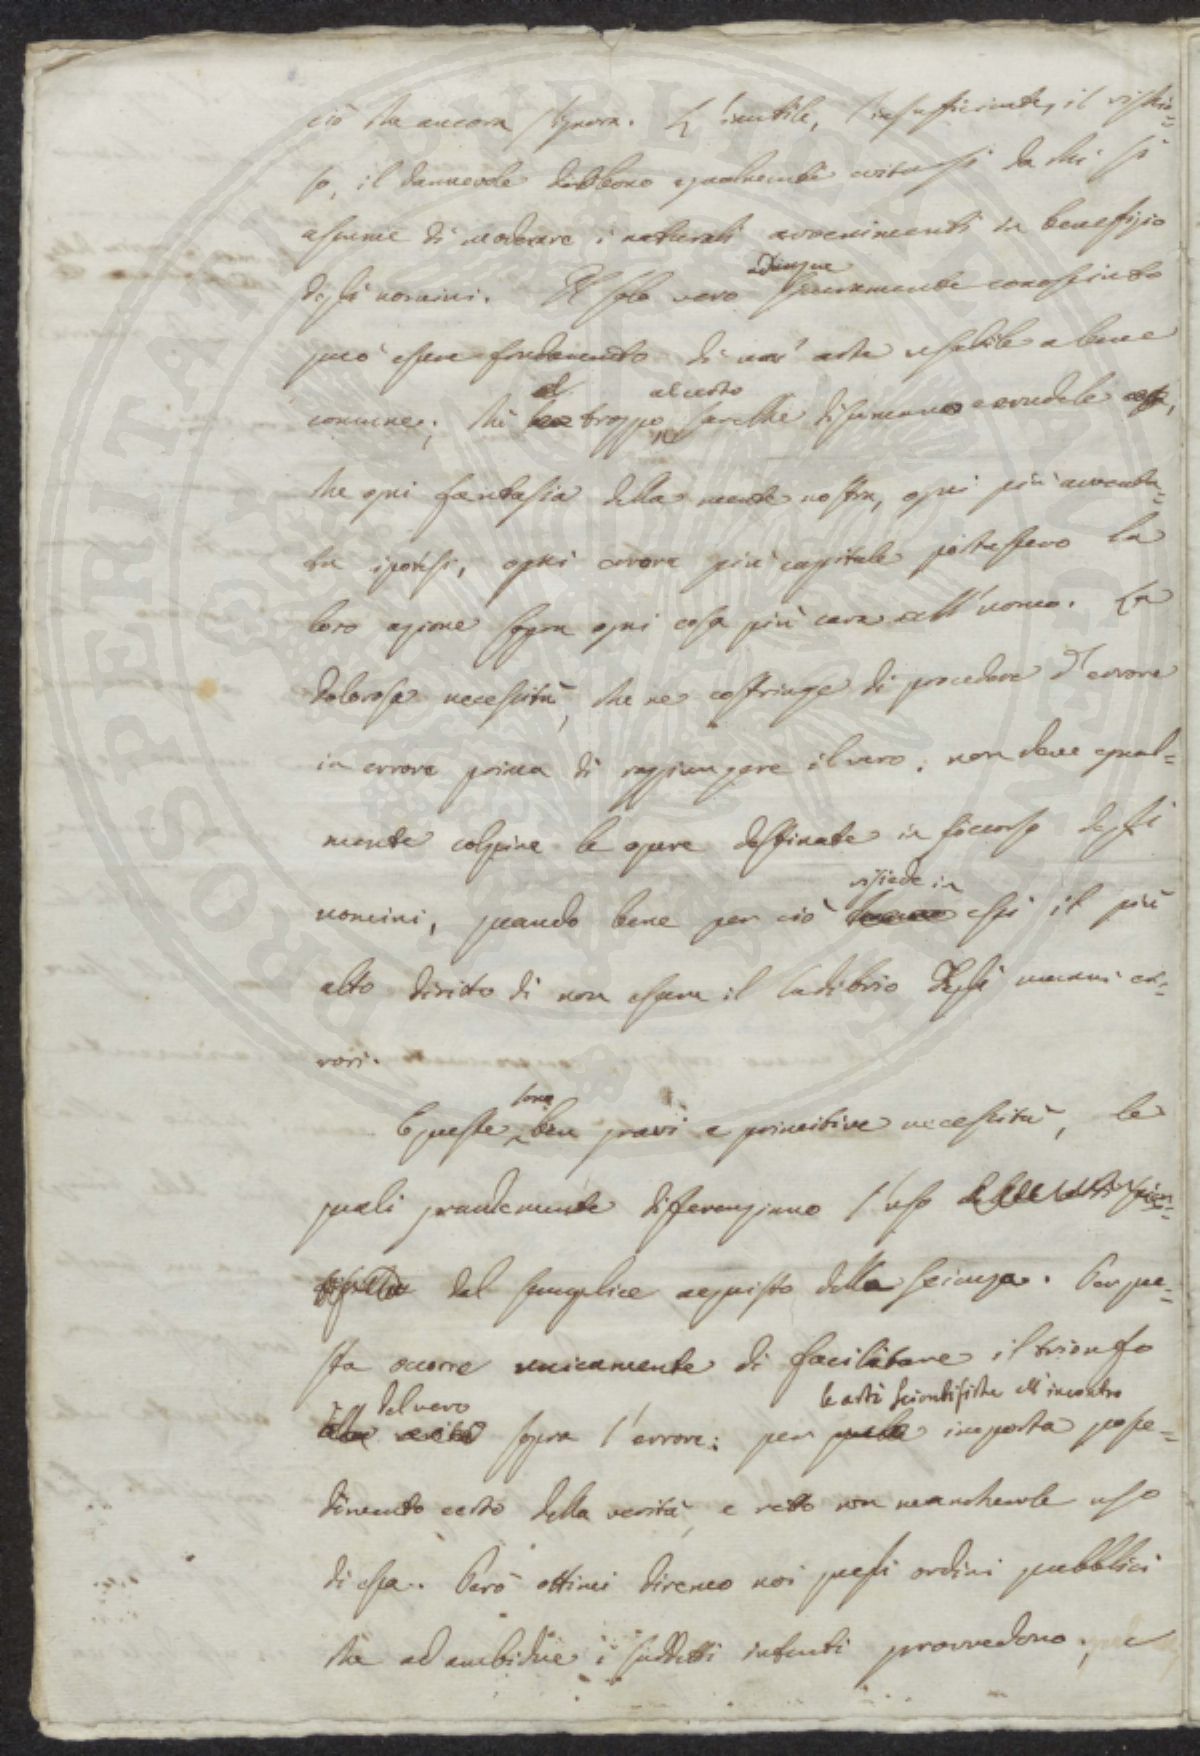 ciò che ancora s'ignora. L'inutile, l'insufficiente, il vizio=
so, il dannevole debbono egualmente evitarsi da chi si
assume di moderare i naturali avvenimenti in benefizio
degli uomini. Il solo vero adunque sicuramente conosciuto
può essere fondamento di un'arte usabile a bene
comune; chè troppo al certo sarebbe disumano e crudele,
che ogni fantasia della mente nostra, ogni più avventa=
ta ipotesi, ogni errore più capitale portassero la
loro azione sopra ogni cosa più cara all'uomo. La
dolorosa necessità, che ne costringe di procedere d'errore
in errore prima di raggiungere il vero, non deve egual=
mente colpire le opere destinate in soccorso degli
uomini, quando bene per ciò risiede in essi il più
alto diritto di non essere il ludibrio degli umani er=
rori.
E queste sono ben gravi e primitive necessità, le
quali grandemente differenziano l'uso
dal semplice acquisto della scienza. Per que=
sta occorre unicamente di facilitare il trionfo
del vero sopra l'errore: per le arti scientifiche all'incontro importa posse=
dimento certo della verità, e retto non manchevole uso
di essa. Però ottimi diremo noi quegli ordini pubblici
che ad ambidue i suddetti intenti provvedono, e